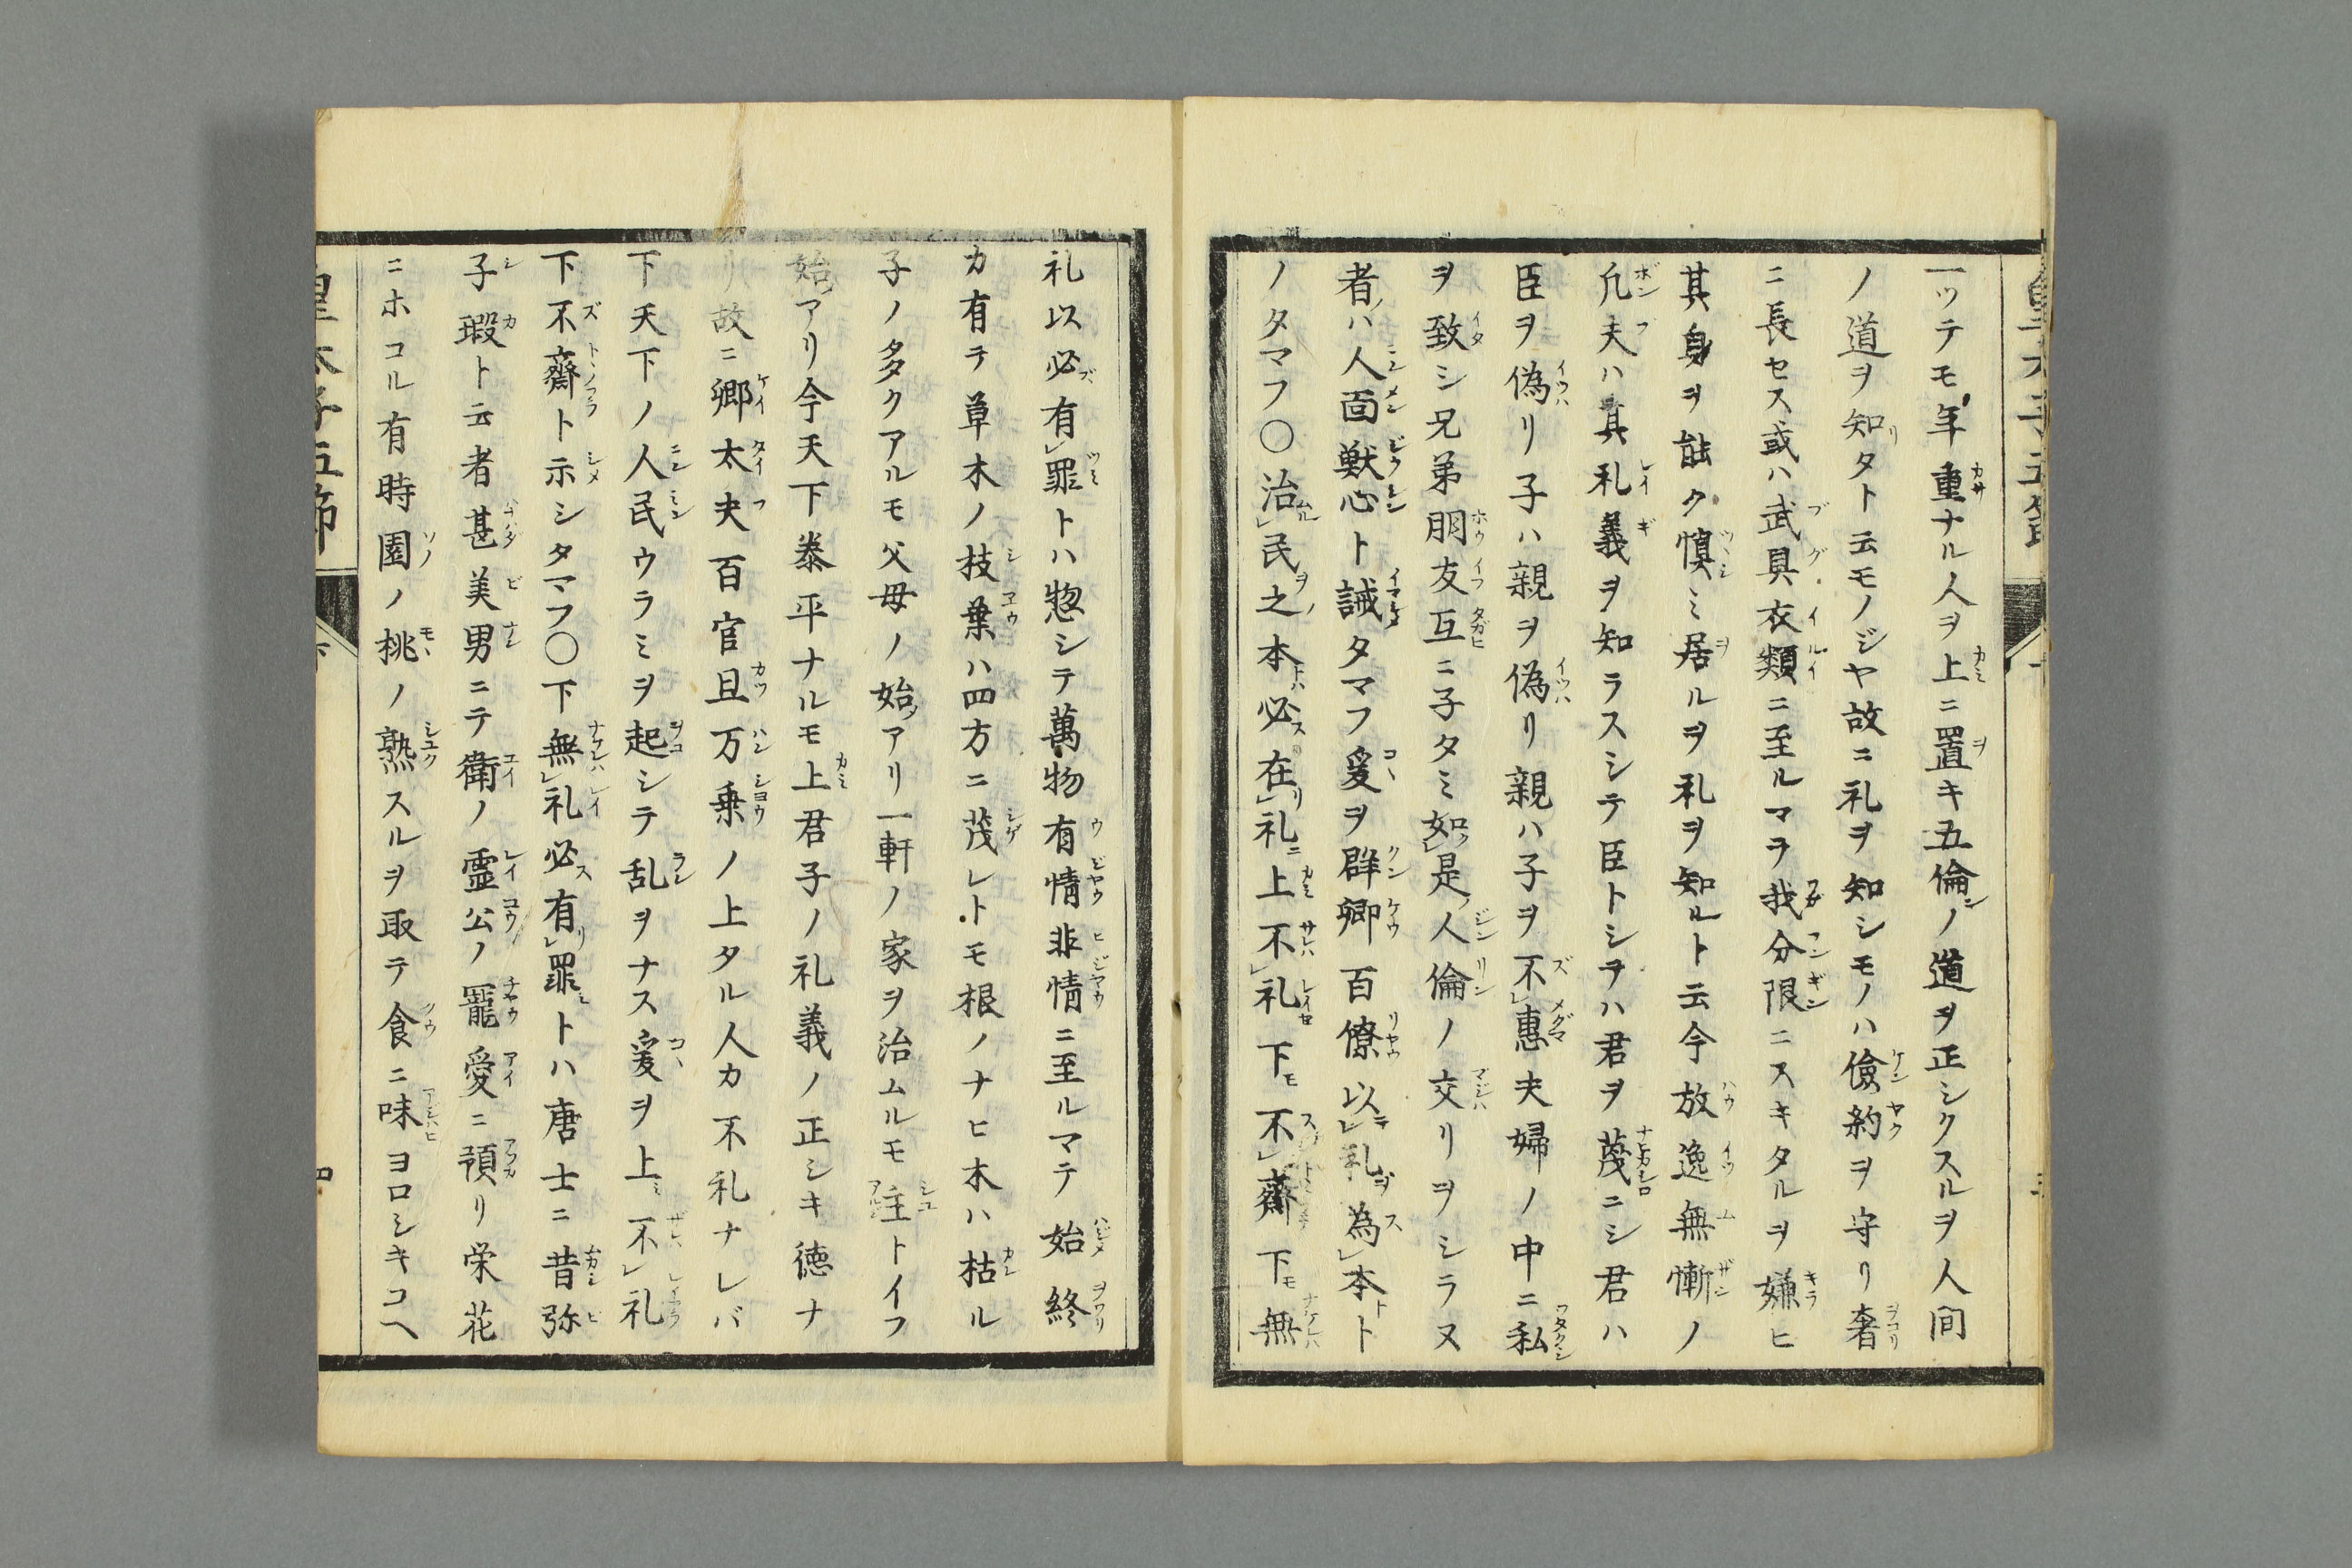 一ツテモ年重ナル人ヲ上ニ置キ五倫ノ道ヲ正シクスルヲ人間
ノ道ヲ知リタト云モノジヤ故ニ礼ヲ知シモノハ儉約ヲ守リ奢
ニ長セス或ハ武具衣類ニ至ルマテ我分限ニスキタルヲ嫌ヒ
其身ヲ能ク慎ミ居ルヲ礼ヲ知ルト云今放逸無慚ノ
凢夫ハ其礼義ヲ知ラスシテ臣トシテハ君ヲ蔑ニシ君ハ
臣ヲ偽リ子ハ親ヲ偽リ親ハ子ヲ不レ惠夫婦ノ中ニ私
ヲ致シ兄弟朋友互ニ子タミ如レ是ノ人倫ノ交リヲシラヌ
者ノハ人面獣心ト誡タマフ爰ヲ群卿百僚以テレ礼ヲ為スレ本トト
ノタマフ〇治ムルレ民ヲ之ノ本トハ必ス在リレ礼ニ上不レ礼下モ不レ齋下モ無
礼以必ズ有レ罪トハ惣シテ萬物有情非情ニ至ルマテ始終
カ有テ草木ノ枝葉ハ四方ニ茂レトモ根ノナヒ木ハ枯ル
子ノ多クアルモ父母ノ始メアリ一軒ノ家ヲ治ムルモ主トイフ
始メアリ今天下泰平ナルモ上君子ノ礼義ノ正シキ徳ナ
リ故ニ卿太夫百官且万乗ノ上タル人カ不礼ナレバ
下天下ノ人民ウラミヲ起シテ乱ヲナス爰ヲ上ミ不レ礼
下不齋ト示シタマフ〇下無レ礼必ス有リレ罪ミトハ唐士ニ昔弥
子瑕ト云者甚美男ニテ衛ノ霊公ノ寵愛ニ預リ栄花
ニホコル有時園ノ桃ノ熟スルヲ取テ食ニ味ヨロシキコヘ
皇太子五節